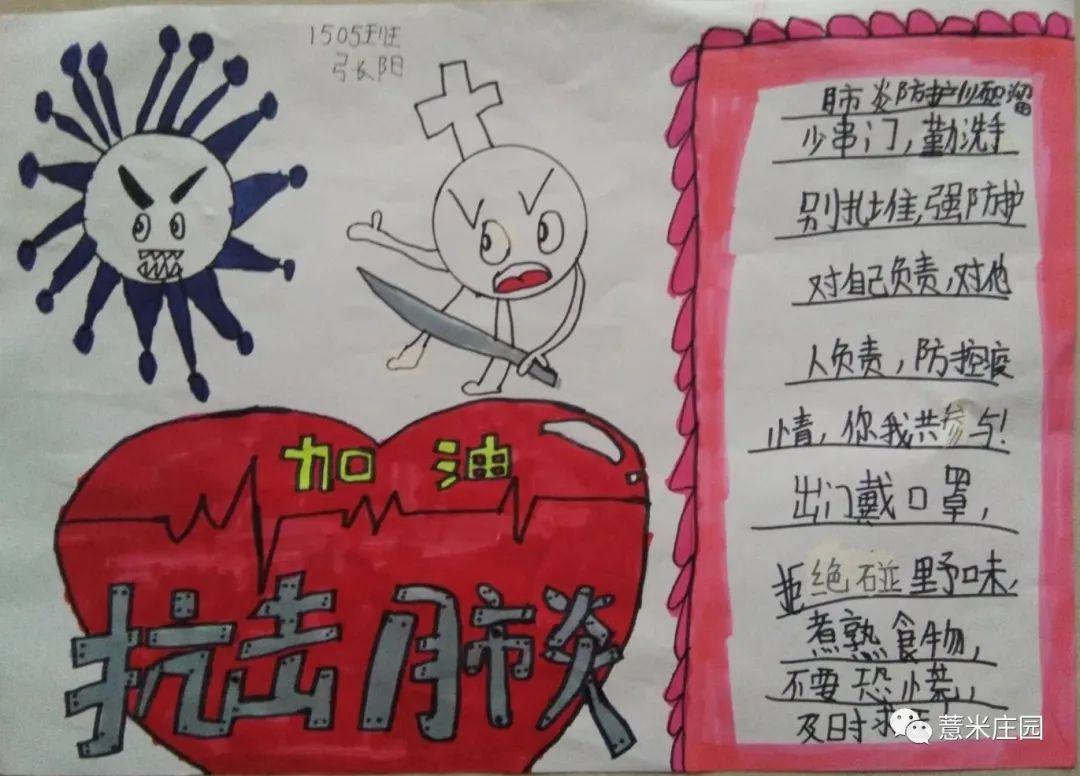 1505班
张阳
加油
抗击肺炎
肺炎防护顺口溜
少串门，勤洗手
别扎堆，强防护
对自己负责，对他
人负责，防控疫
情，你我共参与！
出门戴口罩，
拒绝碰野味，
煮熟食物，
不要恐慌，
及时求
薏米庄园